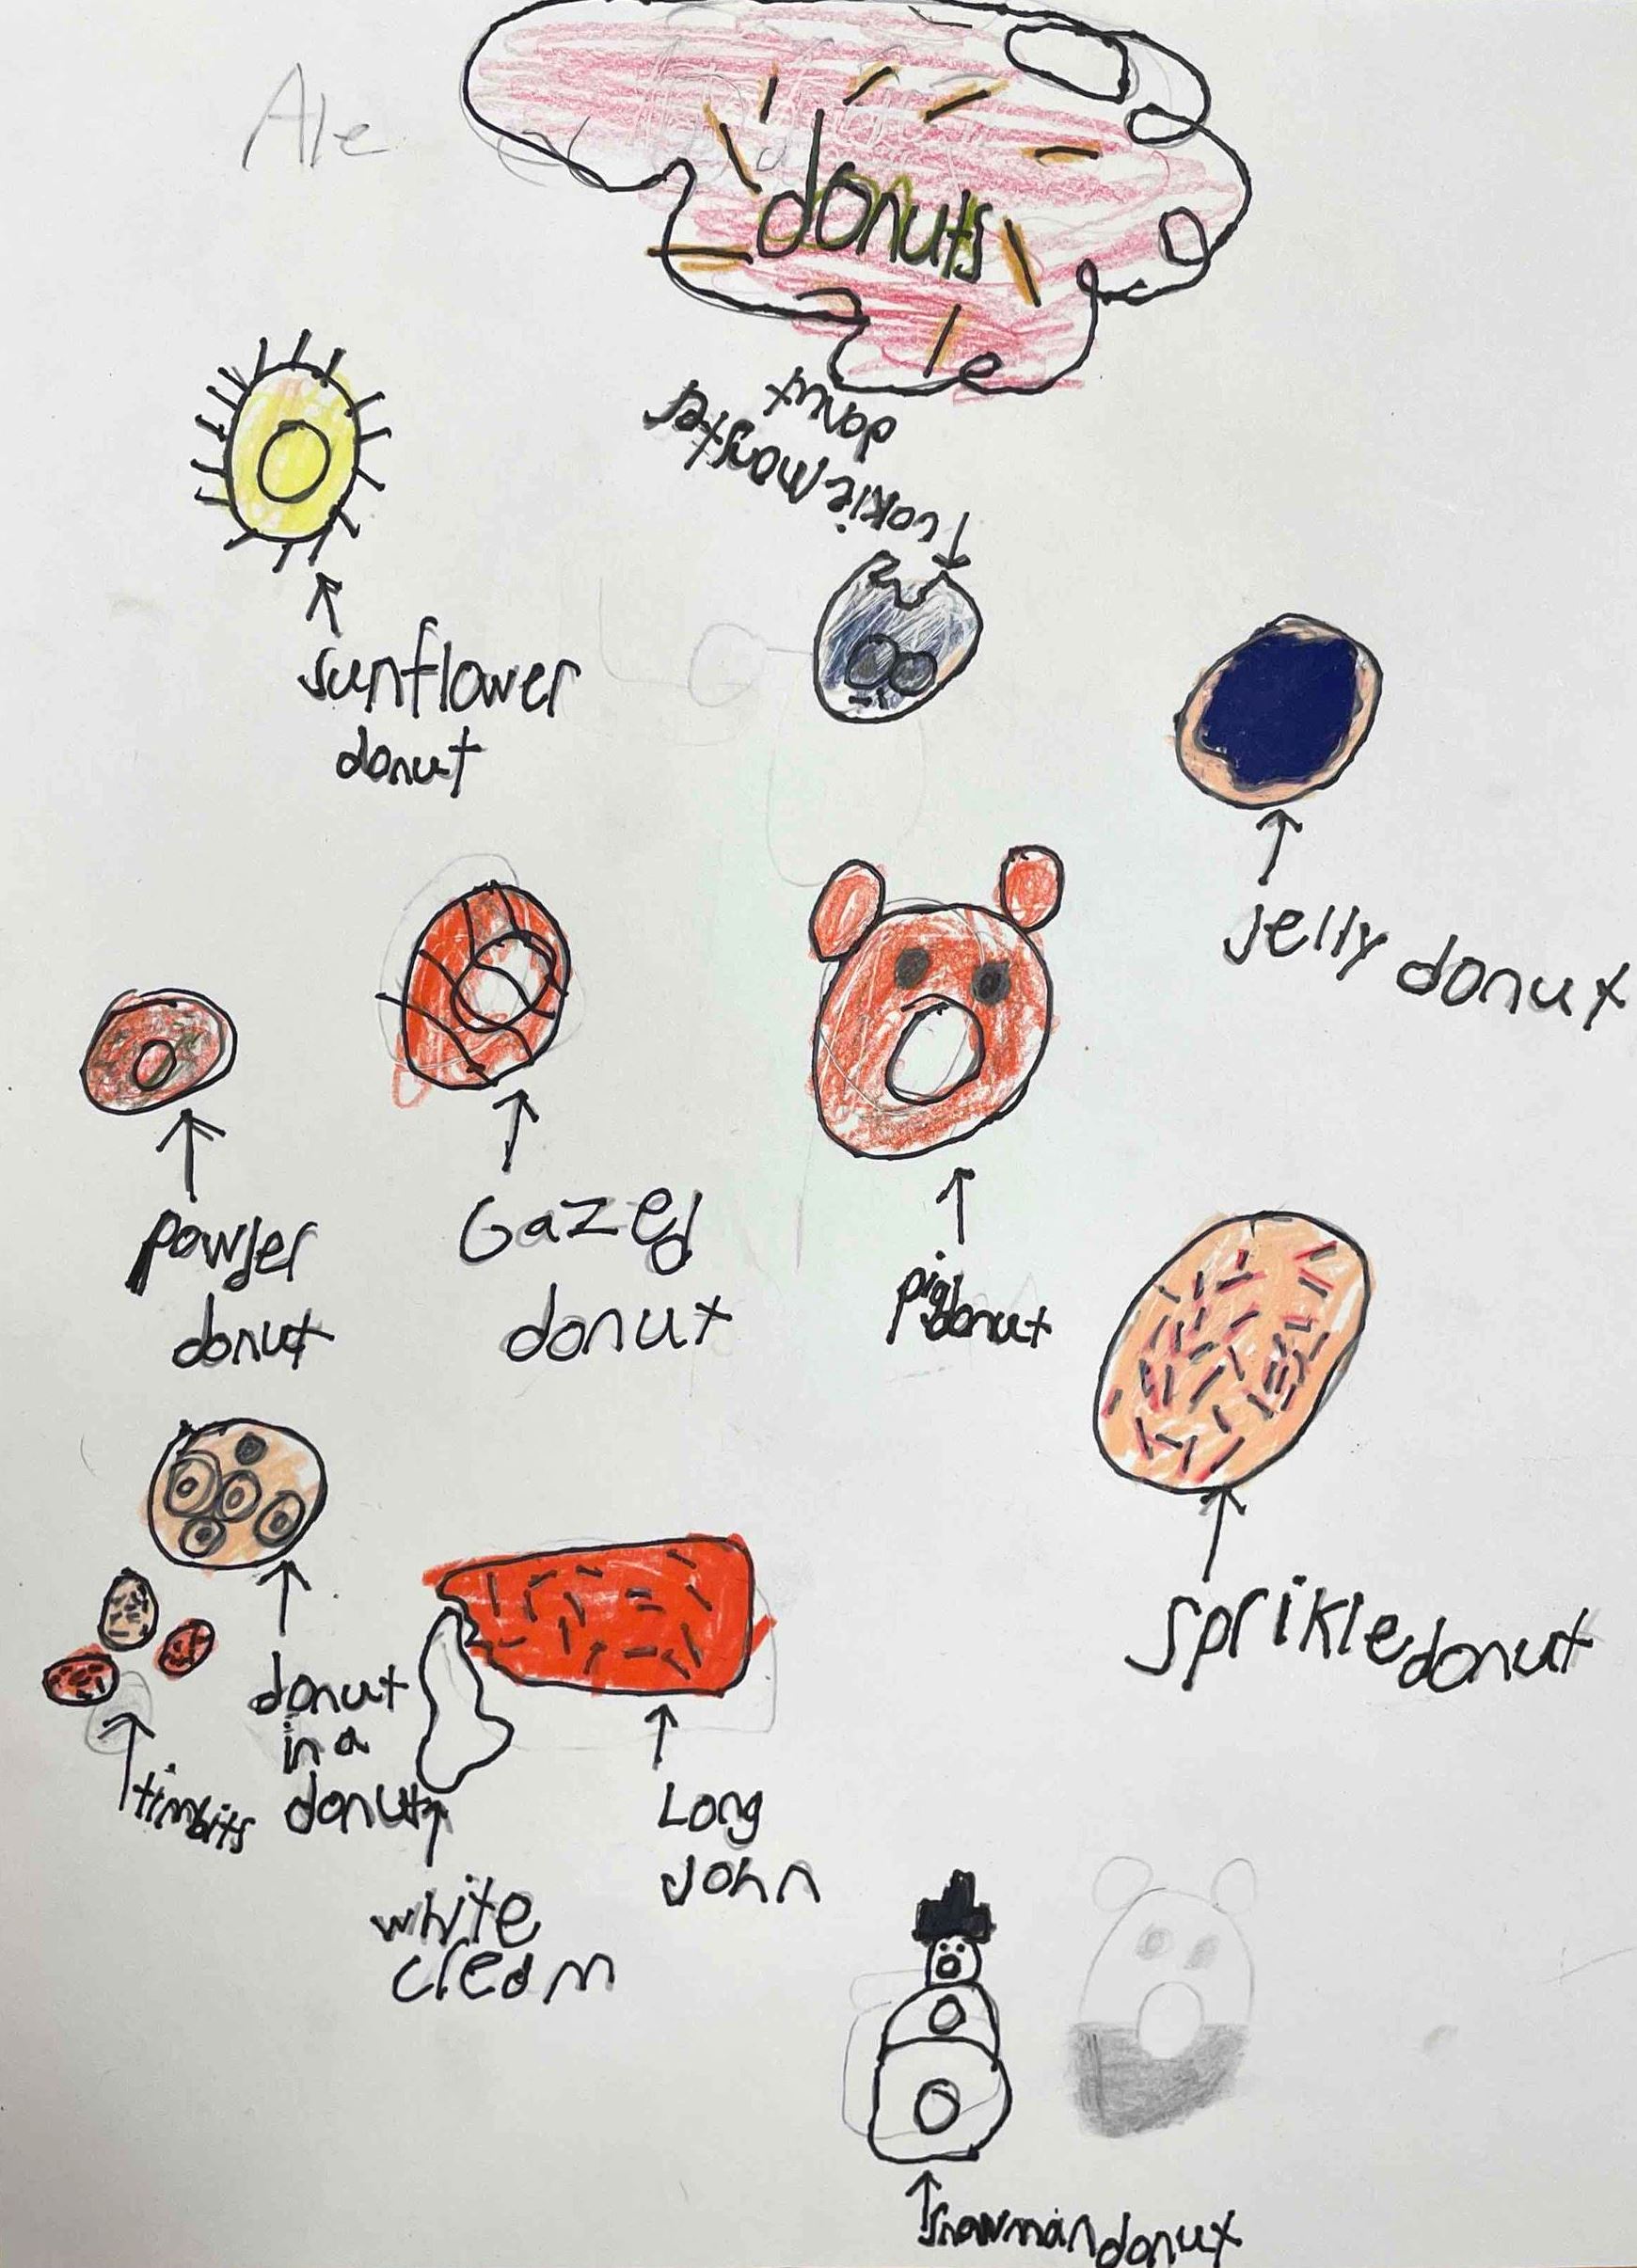 Ale
donuts
cookie monster
donut
sunflower
donut
jelly donut
powder
donut
Gazed
donut
pig donut
sprikle donut
donut
in a
donut
timbits
white
cream
Long
John
snowman donut